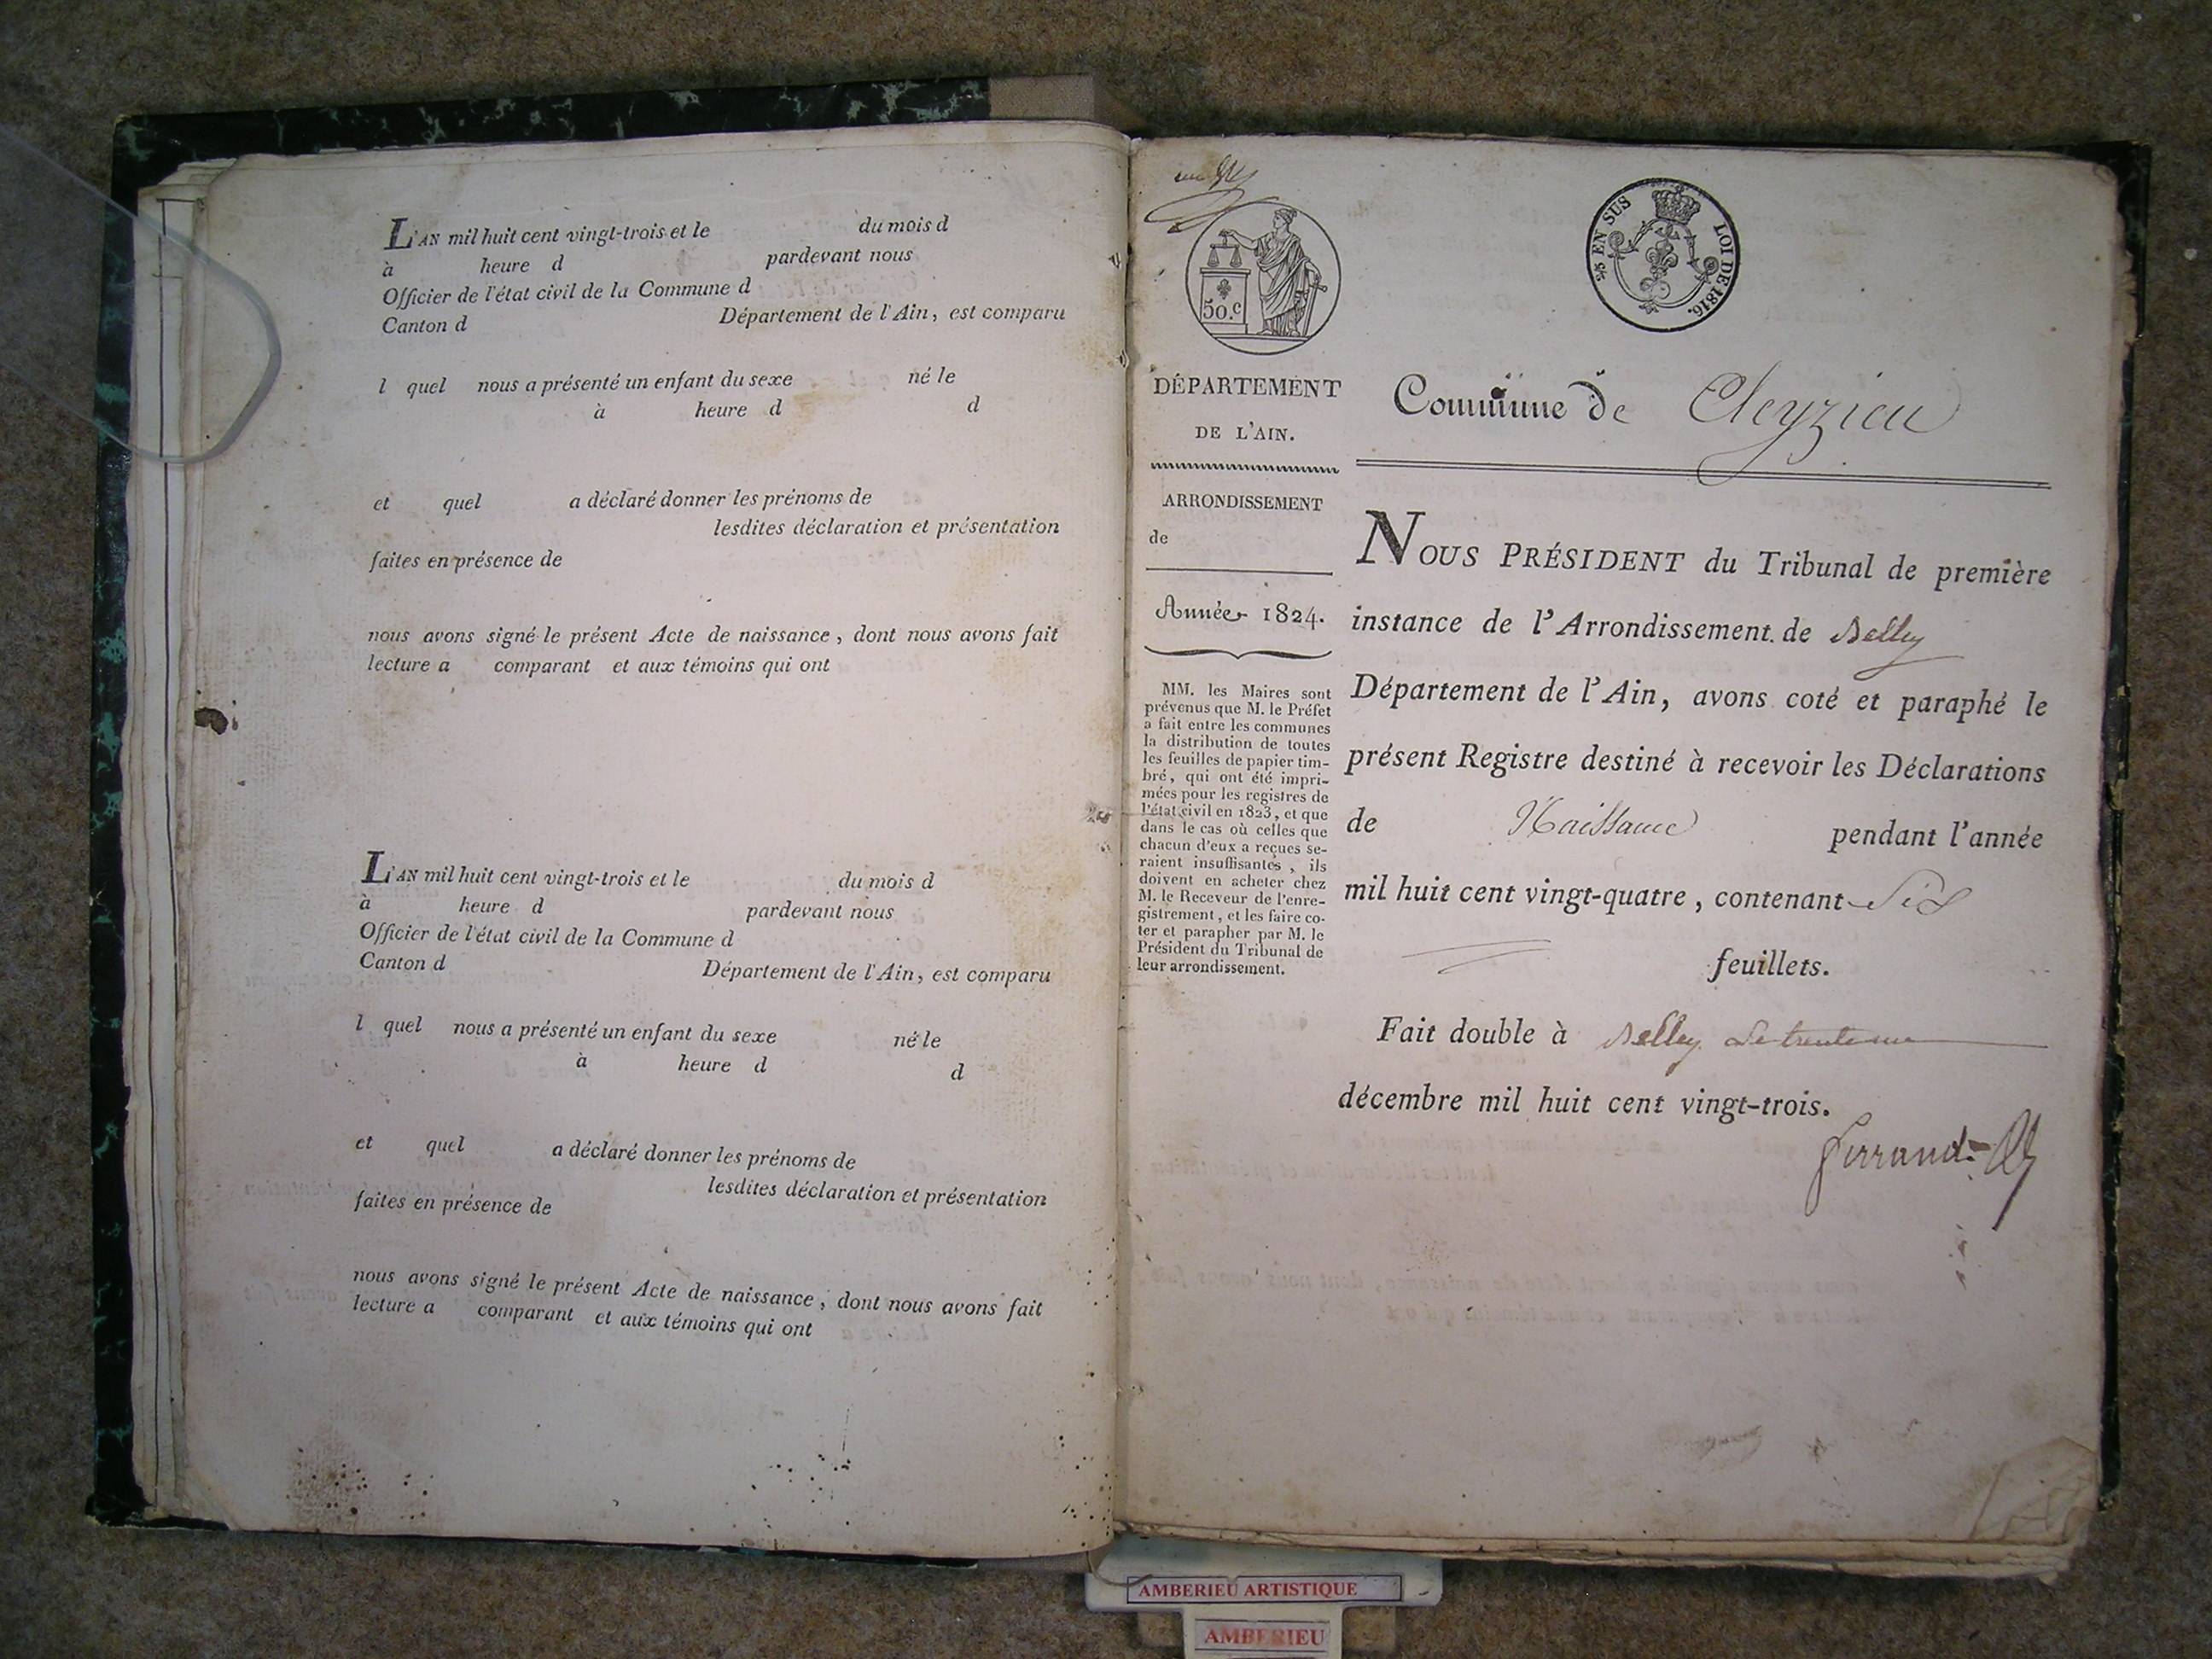 L'AN mil huit cent vingt-trois et le du mois d
à heure d pardevant nous
Officier de l'état civil de la Commune d
Canton d Département de l'Ain, est comparu
l quel nous a présenté un enfant du sexe né le
à heure d d
et quel a déclaré donner les prénoms de
lesdites déclaration et présentation
faites en présence de
nous avons signé le présent Acte de naissance, dont nous avons fait
lecture a comparant et aux témoins qui ont
L'AN mil huit cent vingt-trois et le du mois d
à heure d pardevant nous
Officier de l'état civil de la Commune d
Canton d Département de l'Ain, est comparu
l quel nous a présenté un enfant du sexe né le
à heure d d
et quel a déclaré donner les prénoms de
lesdites déclaration et présentation
faites en présence de
nous avons signé le présent Acte de naissance, dont nous avons fait
lecture a comparant et aux témoins qui ont
50.c
EN SUS LOI DE 1816.
DÉPARTEMENT
DE L'AIN.
ARRONDISSEMENT
de
Année 1824.
MM. les Maires sont
prévenus que M. le Préfet
a fait entre les communes
la distribution de toutes
les feuilles de papier tim-
bré, qui ont été impri-
mées pour les registres de
l'état civil en 1823, et que
dans le cas où celles que
chacun d'eux a reçues se-
raient insuffisantes, ils
doivent en acheter chez
M. le Receveur de l'enre-
gistrement, et les faire co-
ter et parapher par M. le
Président du Tribunal de
leur arrondissement.
Commune de Cleyzieu
NOUS PRÉSIDENT du Tribunal de première
instance de l'Arrondissement de Belley
Département de l'Ain, avons coté et paraphé le
présent Registre destiné à recevoir les Déclarations
de Naissance pendant l'année
mil huit cent vingt-quatre, contenant Six
feuillets.
Fait double à Belley Le trente un
décembre mil huit cent vingt-trois.
AMBERIEU ARTISTIQUE
AMBERIEU